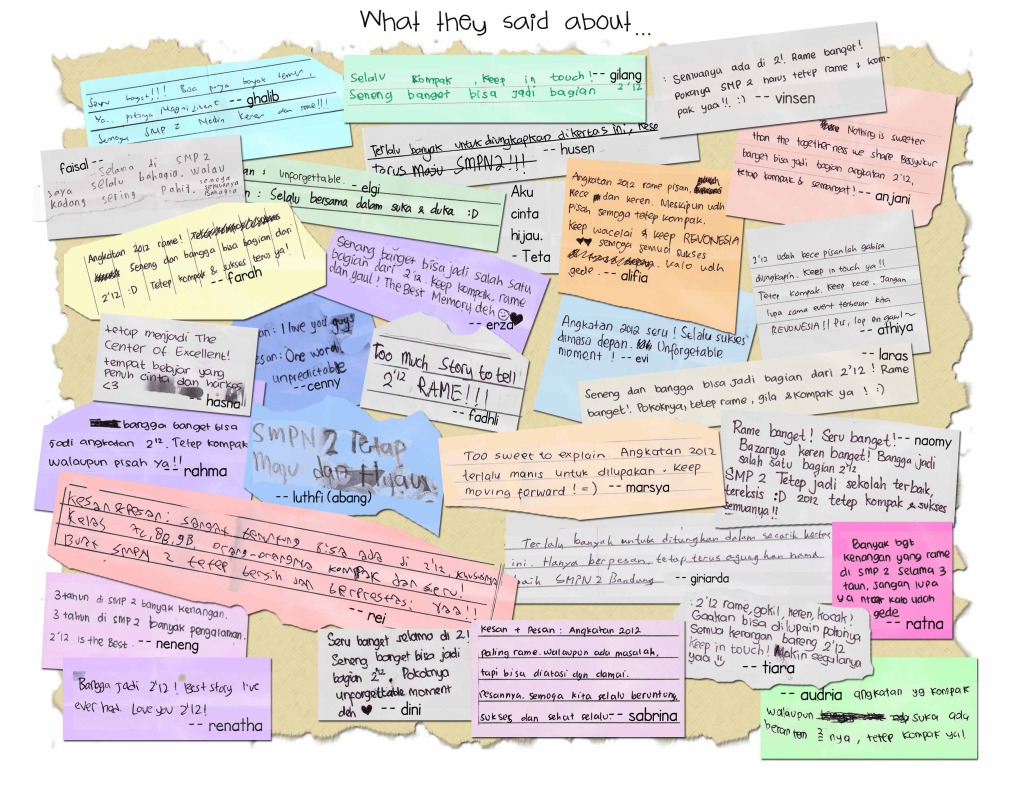 What they said about...
Seru banget!!! Bisa punya banyak temen,
Ya.. pokonya Magnificent -- ghalib
Semoga SMP 2 Makin keren dan rame!!!
Selalu kompak, keep in touch! -- gilang
Seneng banget bisa jadi bagian 2'12
: Semuanya ada di 2! Rame banget!
Pokonya SMP 2 harus tetep rame & kom-
pak yaa!! :) -- vinsen
faisal -- Selama di SMP 2
saya selalu bahagia. walau
kadang sering pahit. semoga semuanya bahagia
n : unforgettable. -- elgi
n : Selalu bersama dalam suka & duka :D
Terlalu banyak untuk diungkapkan dikertas ini, kese
-- husen
Terus Maju SMPN2!!!
Aku
cinta
hijau.
- Teta
Angkatan 2012 rame pisan,
kece dan keren. Meskipun udh
pisah semoga tetep kompak.
Keep wacelai & keep REVONESIA
♥♥ semoga semua sukses
valo udh
gede. -- alifia
Nothing is sweeten
than the togetherness we share. Bersyukur
banget bisa jadi bagian angkatan 2'12,
tetap kompak & semangat! -- anjani
Angkatan 2012 rame!
Seneng dan bangga bisa bagian dari
2'12 :D Tetep kompak & sukses terus ya!
-- farah
Senang banget bisa jadi salah satu
bagian dari 2'12. Keep kompak, rame
dan gaul! The Best Memory deh ☺♥
-- erza
2'12 udah kece pisanlah gabisa
diungkapin. Keep in touch ya!!
Tetep kompak. Keep kece. Jangan
lupa sama event terbesar kita
REVONESIA!! Pur, lop en gawl~
-- athiya
tetap menjadi The
Center of Excellent!
tempat belajar yang
penuh cinta dan
<3
-- hasna
an : I love you guys
esan : One word!
unpredictable
-- cenny
Too Much Story to tell
2'12. RAME!!!
-- fadhli
Angkatan 2012 seru! Selalu sukses
dimasa depan. Unforgetable
moment! -- evi
-- laras
Seneng dan bangga bisa jadi bagian dari 2'12! Rame
banget!. Pokoknya, tetep rame, gila & kompak ya! :)
bangga banget bisa
jadi angkatan 2'12. Tetep kompak
walaupun pisah ya!! -- rahma
SMPN 2 Tetap
Maju dan Hijau
-- luthfi (abang)
Too sweet to explain. Angkatan 2012
terlalu manis untuk dilupakan. keep
moving forward! =) -- marsya
Rame banget! Seru banget! -- naomy
Bazarnya keren banget! Bangga jadi
salah satu bagian 2'12
SMP 2 Tetep jadi sekolah terbaik,
tereksis :D 2012 tetep kompak & sukses
semuanya!!
Kesan & Pesan : sangat beruntung bisa ada di 2'12, khususnya
Kelas 7C, 8D, 9B, orang-orangnya kompak dan seru!
Buat SMPN 2 tetep bersih dan berprestasi yaa!!
-- rei
Terlalu banyak untuk dituangkan dalam secarik kertas
ini. Hanya berpesan, tetap terus agungkan nama
baik SMPN 2 Bandung -- giriarda
Banyak bgt
kenangan yang rame
di smp 2 selama 3
taun, jangan lupa
ya ntar kalo udah
gede
-- ratna
3 tahun di SMP 2 banyak kenangan.
3 tahun di SMP 2 banyak pengalaman.
2'12 is the Best. -- neneng
Seru banget selama di 2!
Seneng banget bisa jadi
bagian 2'12. Pokoknya
unforgettable moment
deh ♥ -- dini
Kesan + Pesan : Angkatan 2012
paling rame. walaupun ada masalah,
tapi bisa diatasi dgn damai.
Pesannya, semoga kita selalu beruntung,
sukses dan sehat selalu -- sabrina
: 2'12 rame, gokil, keren, kocak!
Gaakan bisa dilupain pokonya
Semua kenangan bareng 2'12
keep in touch! Makin segalanya
yaa ☺
-- tiara
Bangga jadi 2'12! Best story I've
ever had. Love you 2'12!
-- renatha
-- audria angkatan yg kompak
walaupun suka ada
beranten 2 nya, tetep kompak ya!